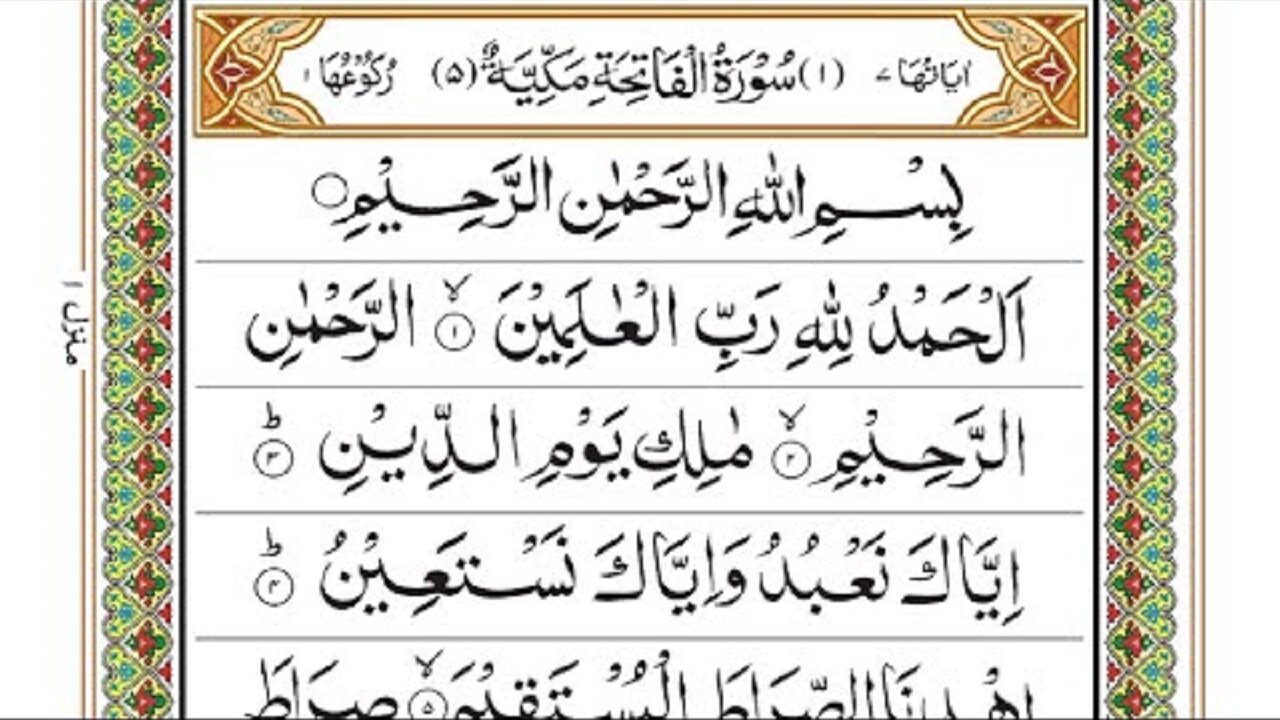 اٰیَاتُهَا ۷ (۱) سُوْرَةُ الْفَاتِحَةِ مَكِّيَّةٌ (۵) رُكُوْعُهَا ۱
بِسْمِ اللّٰهِ الرَّحْمٰنِ الرَّحِيْمِ ○
اَلْحَمْدُ لِلّٰهِ رَبِّ الْعٰلَمِيْنَ ۙ ۱ الرَّحْمٰنِ
الرَّحِيْمِ ۙ ۲ مٰلِكِ يَوْمِ الدِّيْنِ ؕ ۳
اِيَّاكَ نَعْبُدُ وَاِيَّاكَ نَسْتَعِيْنُ ؕ ۴
اِهْدِنَا الصِّرَاطَ الْمُسْتَقِيْمَ ۙ ۵ صِرَاطَ
منزل ۱